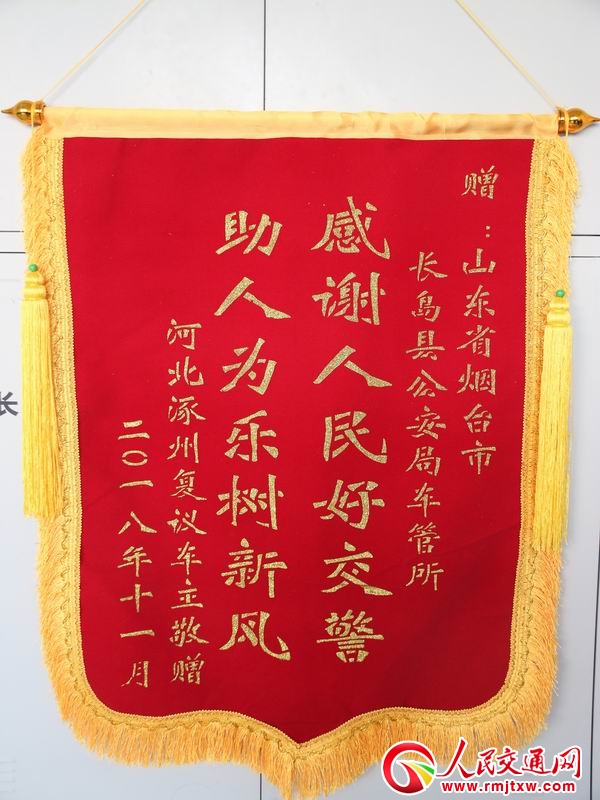 赠：山东省烟台市
长岛县公安局车管所
感谢人民好交警
助人为乐树新风
河北涿州复议车主敬赠
二〇一八年十一月
长
人民交通网
www.rmjtxw.com